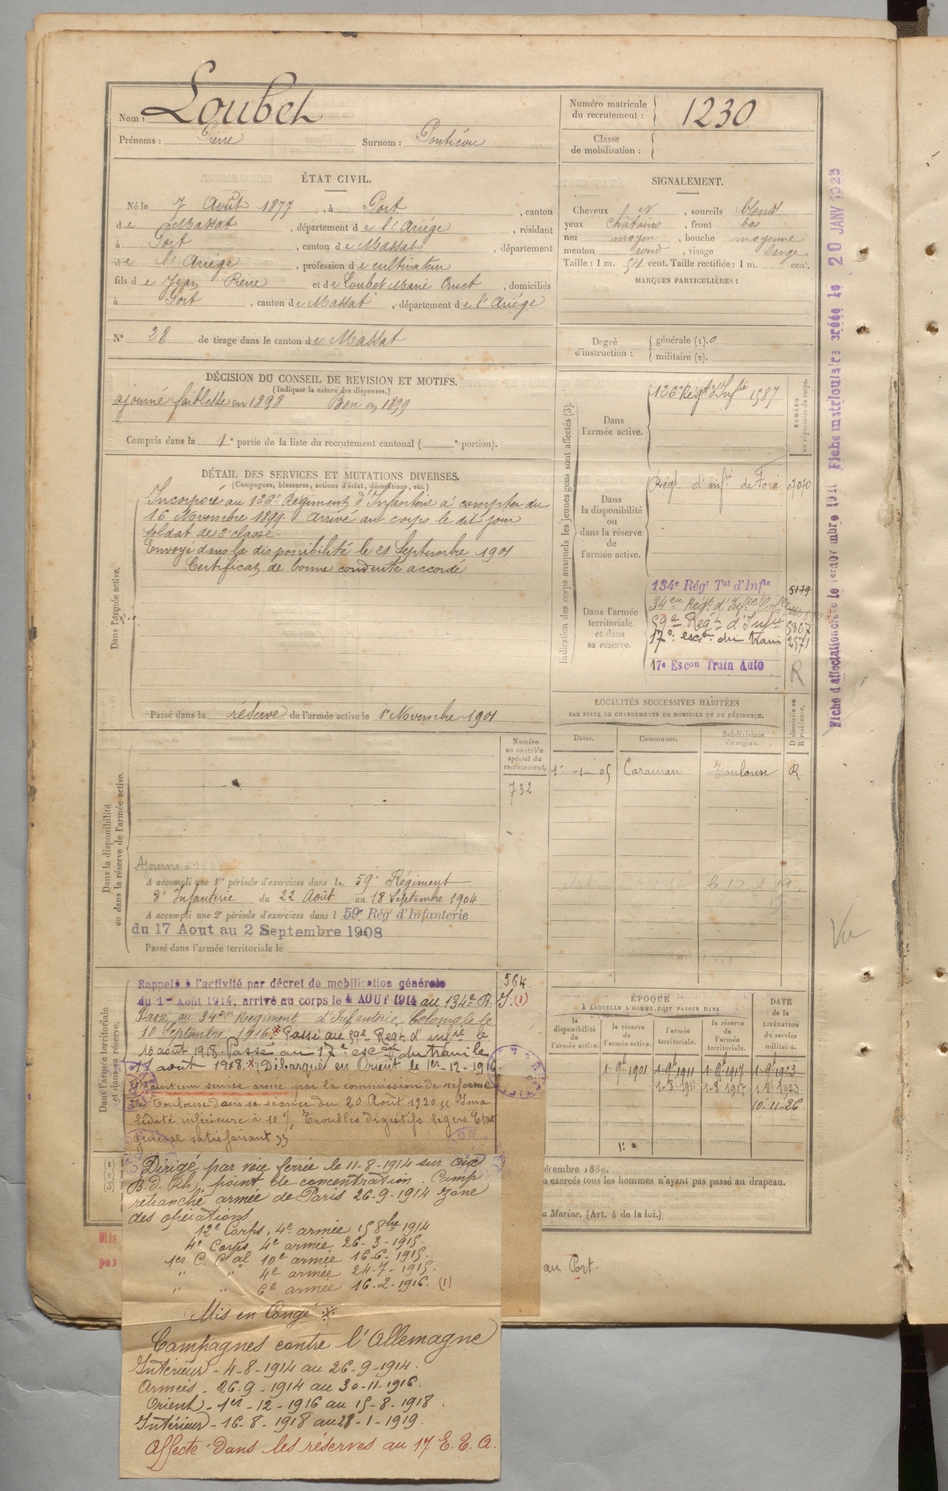 Nom : Loubet
Prénoms : Pierre Surnom : Ponticou
ÉTAT CIVIL.
Né le 7 Août 1877, à Port, canton
de Massat, département de l'Ariège, résidant
à Port, canton de Massat, département
de l'Ariège, profession de cultivateur
fils de Jean Pierre et de Loubet Marie, domiciliés
à Port, canton de Massat, département de l'Ariège
N° 28 de tirage dans le canton de Massat
DÉCISION DU CONSEIL DE REVISION ET MOTIFS.
(Indiquer la nature des dispenses.)
ajourné faiblesse en 1898 Bon en 1899
Compris dans la 1e partie de la liste du recrutement cantonal ( e portion).
DÉTAIL DES SERVICES ET MUTATIONS DIVERSES.
(Campagnes, blessures, actions d'éclat, décorations, etc.)
Dans l'armée active.
Incorporé au 126e Régiment d'Infanterie à compter du
16 Novembre 1899. Arrivé au corps le dit jour
soldat de 2e classe
Envoyé dans la disponibilité le 21 Septembre 1901
Certificat de bonne conduite accordé
Passé dans la réserve de l'armée active le 1er Novembre 1901
Dans la disponibilité
ou dans la réserve de l'armée active.
Numéro
au contrôle
spécial du
recrutement.
732
A accompli une 1re période d'exercices dans le 59e Régiment
d'Infanterie du 22 Août au 18 Septembre 1904
A accompli une 2e période d'exercices dans l 59e Rég d'Infanterie
du 17 Aout au 2 Septembre 1908
Passé dans l'armée territoriale le
Dans l'armée territoriale
et dans sa réserve.
564
Rappelé à l'activité par décret de mobilisation générale
du 1er Août 1914, arrivé au corps le 4 AOUT 1914 au 134e R. I. (1)
Passé au 34e Régiment d'Infanterie Coloniale le
10 septembre 1916 Passé au 59e Regt d'infie le
10 août 1918 Passé au 17e escon du train le
août 1918. Débarqué en Orient le 1er-12-1916
Maintenu service armé par la commission de réforme
de Toulouse dans sa séance du 20 Août 1920 "Inva
lidité inférieure à 10% Troubles digestifs légers Etat
général satisfaisant"
Dirigé par voie ferrée le 11-8-1914 sur
point de concentration. Camp
retranché armée de Paris 26-9-1914 zone
des opérations
12e Corps, 4e armée 15 8bre 1914
4e Corps, 4e armée 26-3-1915
1er C. Cal 10e armée 16-6-1915.
" " 4e armée 24-7-1915.
" " 6e armée 16-2-1916. (1)
Mis en Congé
Campagnes contre l'Allemagne
Intérieur - 4-8-1914 au 26-9-1914.
Armées - 26-9-1914 au 30-11-1916
Orient - 1er-12-1916 au 15-8-1918.
Intérieur - 16-8-1918 au 28-1-1919.
Affecté dans les réserves au 17 E. E. A.
Numéro matricule
du recrutement : 1230
Classe
de mobilisation :
SIGNALEMENT.
Cheveux, sourcils blond
yeux chatains, front bas
nez moyen, bouche moyenne
menton rond, visage large
Taille : 1 m. 54 cent. Taille rectifiée : 1 m. cent.
MARQUES PARTICULIÈRES :
Degré
d'instruction :
générale (1). 0
militaire (2).
Indication des corps auxquels les jeunes gens sont affectés (3).
Dans
l'armée active.
126e Régt d'Infie 1587
Dans
la disponibilité
ou
dans la réserve
de
l'armée active.
Régt d'infie de Foix
Dans l'armée
territoriale
et dans
sa réserve.
134e Régt Tal d'Infie 5179
34e Régt d'Infie
59e Régt d'Infie 5867
17e escon du train 2571
17e Escon Train Auto R
LOCALITÉS SUCCESSIVES HABITÉES
PAR SUITE DE CHANGEMENTS DE DOMICILE OU DE RÉSIDENCE.
Dates. Communes. Subdivisions de région. D domicile ou R résidence.
1-1-05 Caraman Toulouse R
ÉPOQUE
À LAQUELLE L'HOMME DOIT PASSER DANS
DATE
DE LA
LIBÉRATION
DU
service
militaire.
la
disponibilité
de
l'armée active.
la réserve
de
l'armée active.
l'armée
territoriale.
la réserve
de
l'armée
territoriale.
1-9bre 1901 1-9bre 1911 1-9bre 1917 1-9bre 1923
10-11-26
décembre 1889.
exercés tous les hommes n'ayant pas passé au drapeau.
Marine. (Art. 4 de la loi.)
au Port
Vu
Fiche d'affectation créée le 1er novembre Fiche matriculaire créée le 20 JANV 1929